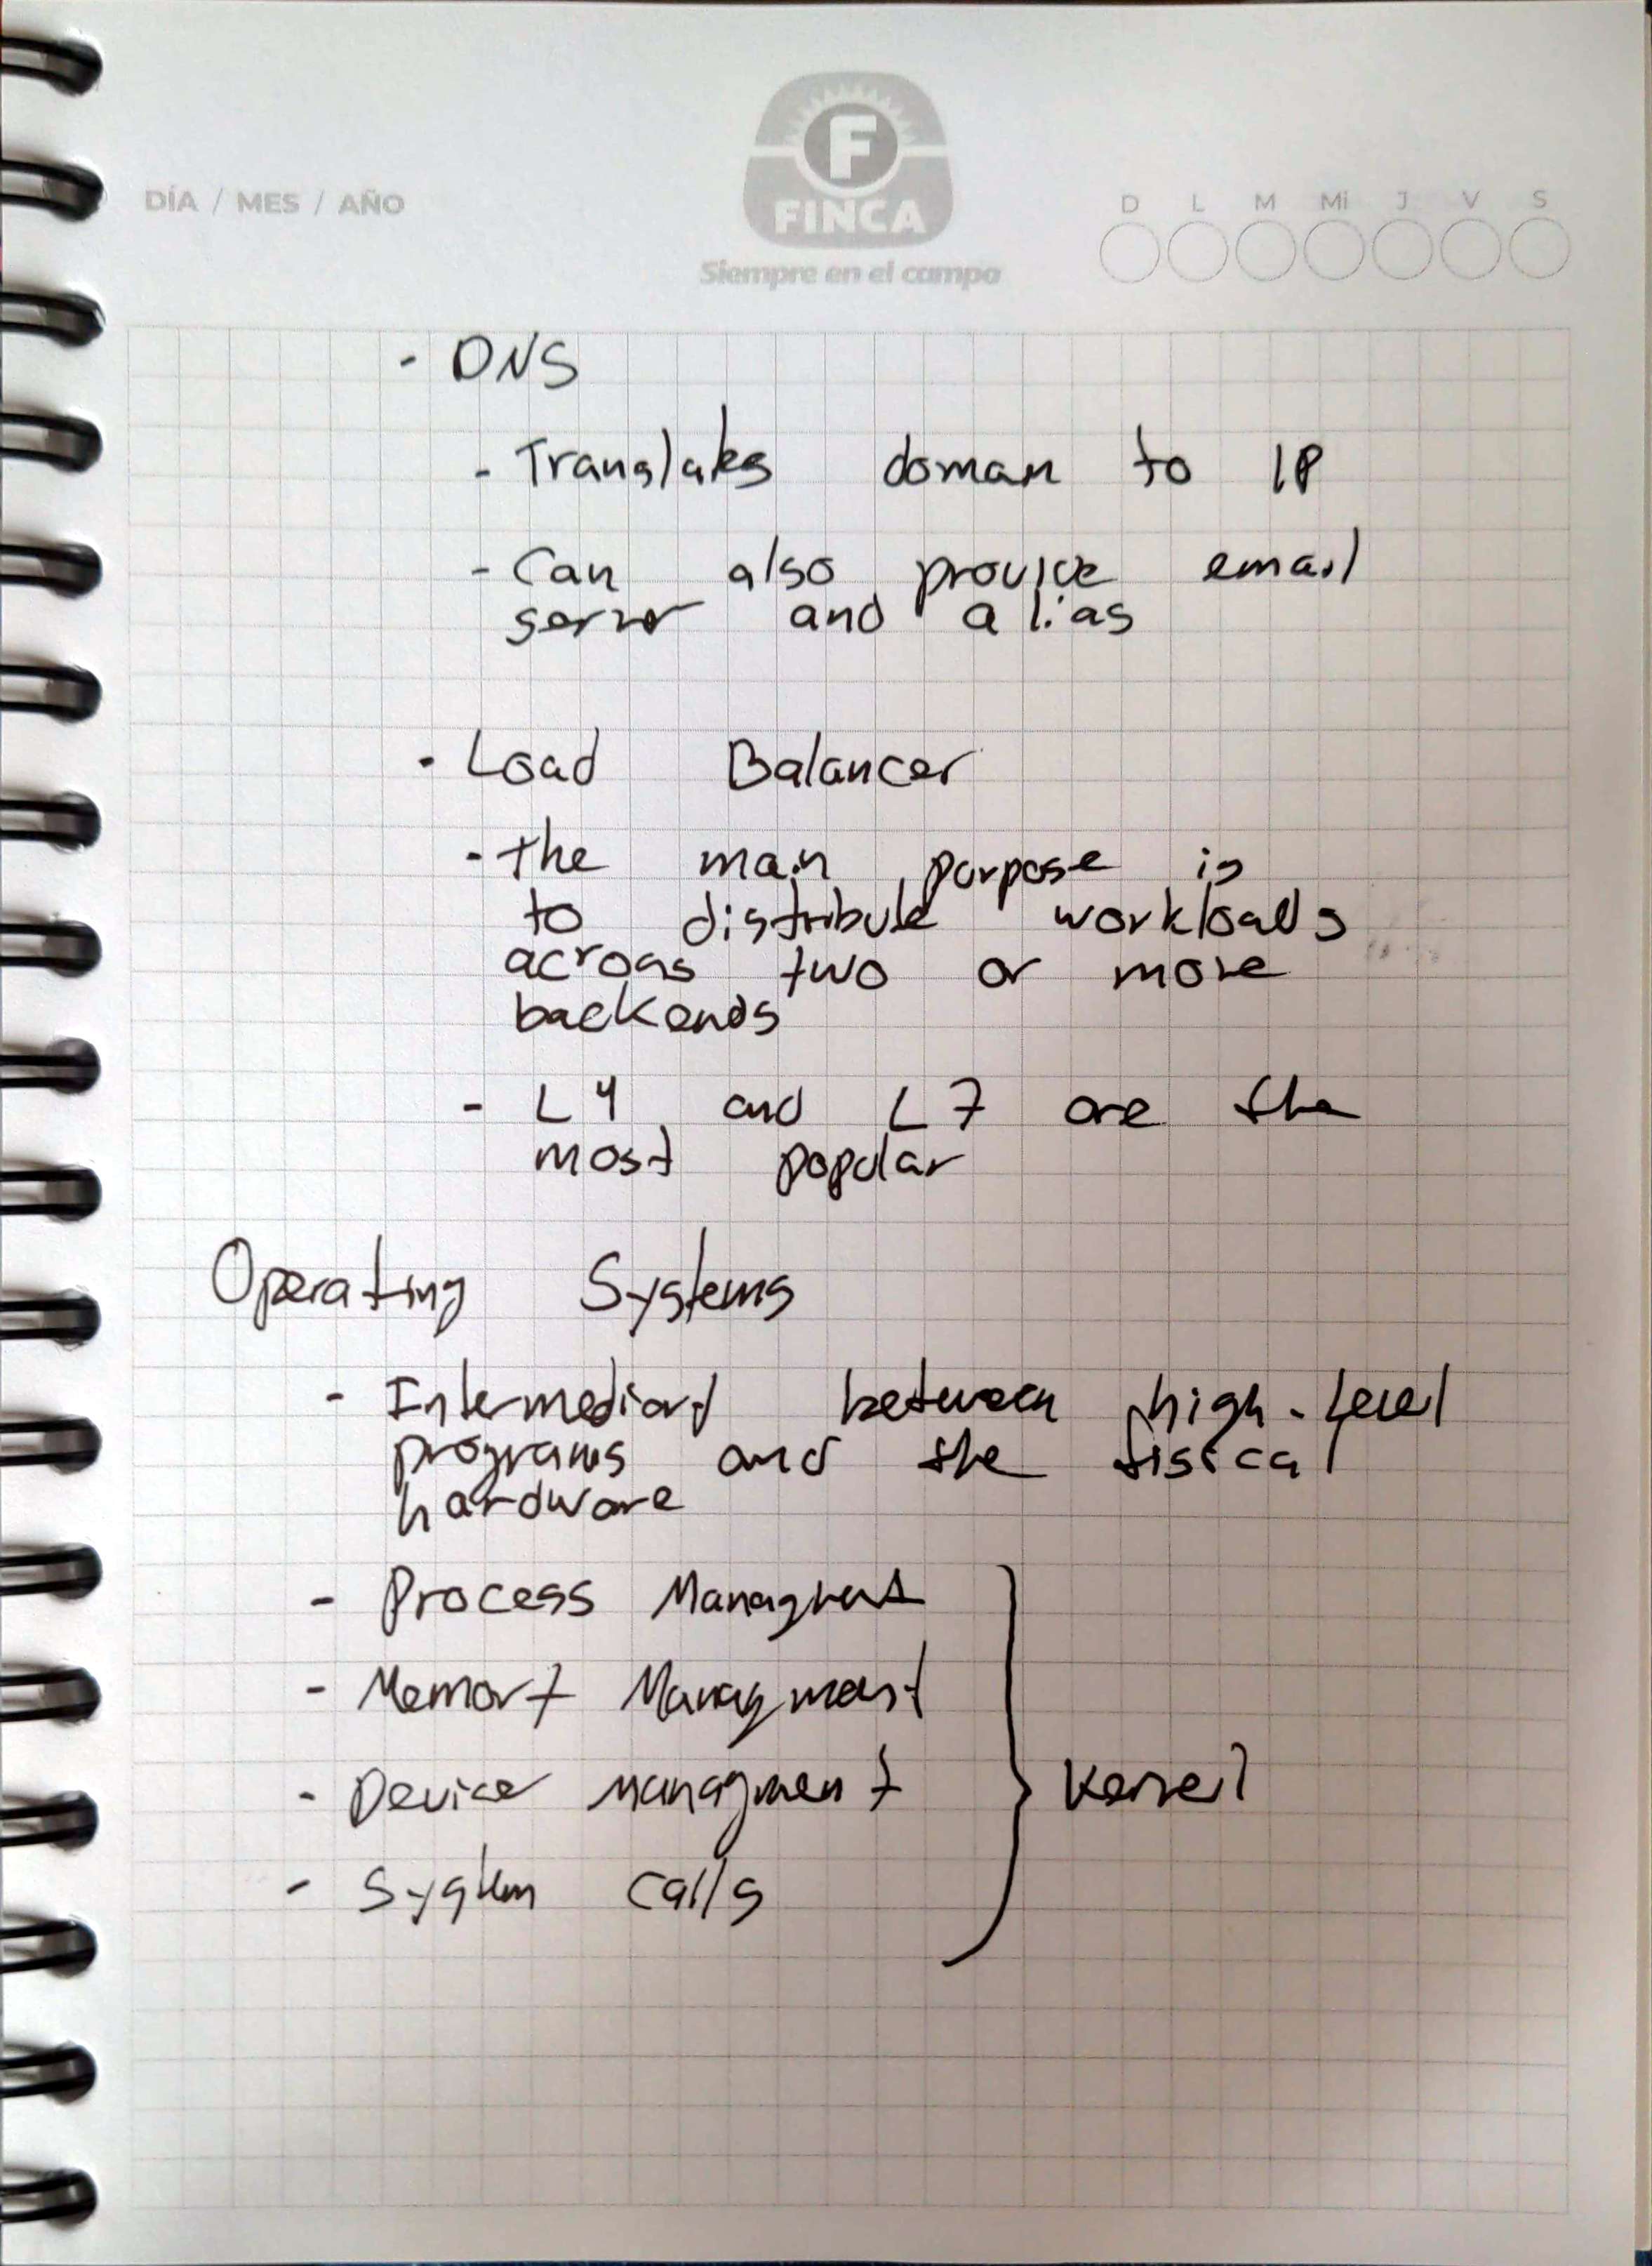 DÍA / MES / AÑO
F
FINCA
Siempre en el campo
D L M Mi J V S
- DNS
- Translates doman to IP
- Can also provide email
server and alias
- Load Balancer
- The main porpose is
to distribute workloads
across two or more
backends
- L4 and L7 are the
most popular
Operating Systems
- Intermediary between high-level
programs and the fisical
hardware
- Process Managment
- Memory Managment
- Device managment
- System calls
Kernel